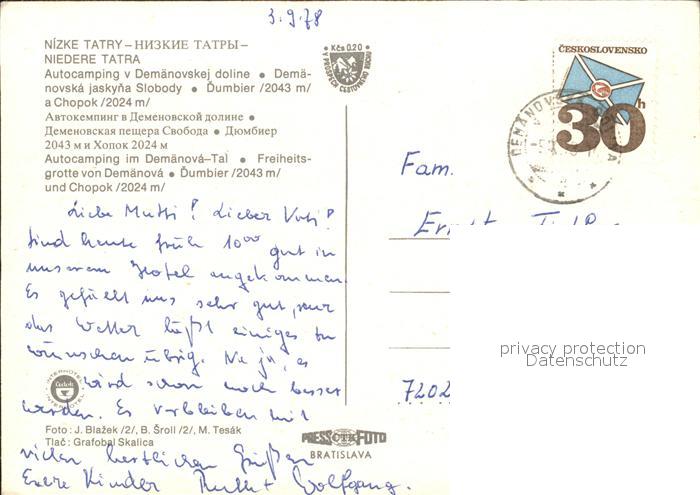 3.9.78
NÍZKE TATRY – НИЗКИЕ ТАТРЫ –
NIEDERE TATRA
Autocamping v Demänovskej doline • Demä-
novská jaskyňa Slobody • Ďumbier /2043 m/
a Chopok /2024 m/
Автокемпинг в Деменовской долине •
Деменовская пещера Свобода • Дюмбиер
2043 м и Хопок 2024 м
Autocamping im Demänová-Tal • Freiheits-
grotte von Demänová • Ďumbier /2043 m/
und Chopok /2024 m/
Kčs 0.20
V PROSPECH CESTOVNÉHO RUCHU
ČESKOSLOVENSKO
30 h
Liebe Mutti! Lieber Vati!
Sind heute früh 10⁰⁰ gut in
unserem Hotel angekommen.
Es gefällt uns sehr gut, nur
das Wetter läßt einiges zu
wünschen übrig. Na ja, es
wird schon noch besser
werden. Es verbleiben mit
vielen herzlichen Grüßen
Eure Kinder Wolfgang.
Fam.
7202
privacy protection
Datenschutz
INTERHOTEL
Čedok
INTERHOTEL
Foto: J. Blažek /2/, B. Šroll /2/, M. Tesák
Tlač: Grafobal Skalica
PRESSFOTO
ČTK
BRATISLAVA